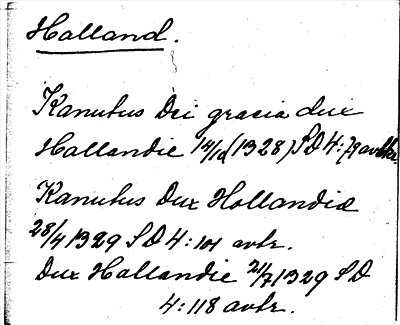 Halland.
Kanutus Dei gracia dux
Hallandie 14/10 (1328) SD 4:79 avtr.
Kanutus Dux Hollandiæ
28/4 1329 SD 4:101 avtr.
Dux Hallandie 21/7 1329 SD
4:118 avtr.